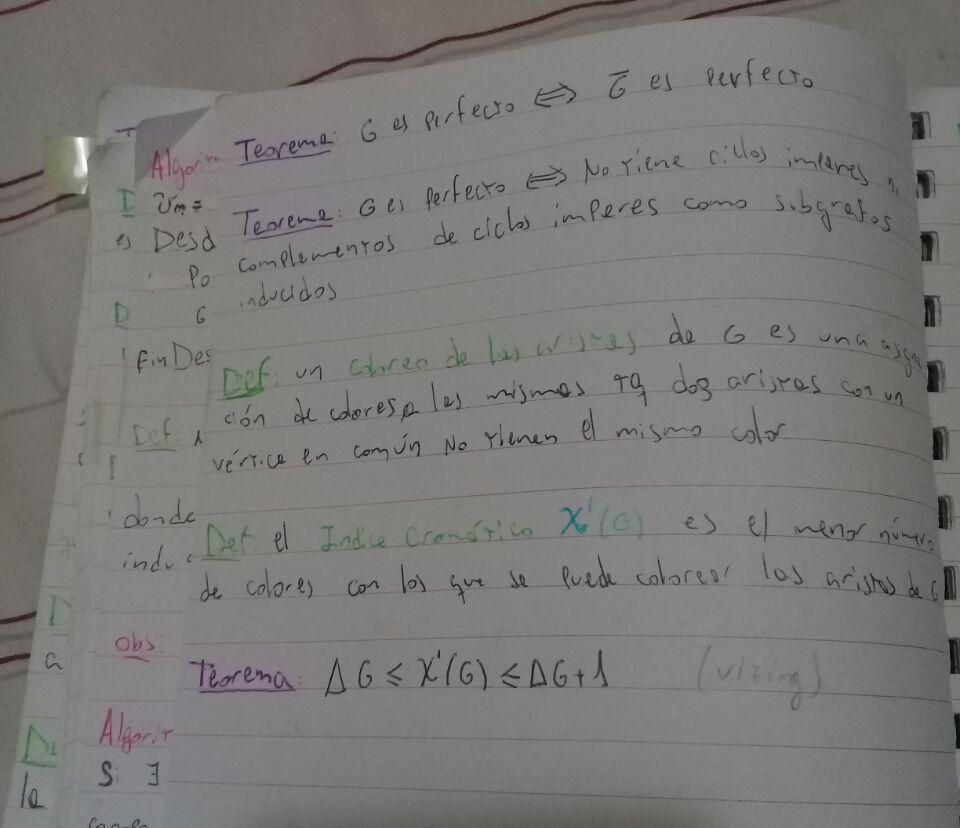 Teorema: G es perfecto ⟺ G̅ es perfecto
Teorema: G es perfecto ⟺ No tiene ciclos impares ni
complementos de ciclos impares como subgrafos
inducidos
Def: un coloreo de las aristas de G es una asigna
ción de colores a las mismas tq dos aristas con un
vértice en común No tienen el mismo color
Def: el Indice cromático χ'(G) es el menor número
de colores con los que se puede colorear las aristas de G
Teorema: ΔG ≤ χ'(G) ≤ ΔG+1 (vizing)
Algorit
Vn=
es Desd
Po
D G
FinDes
Def:
donde
induc
Obs:
a
Algorit
Si ∃
la